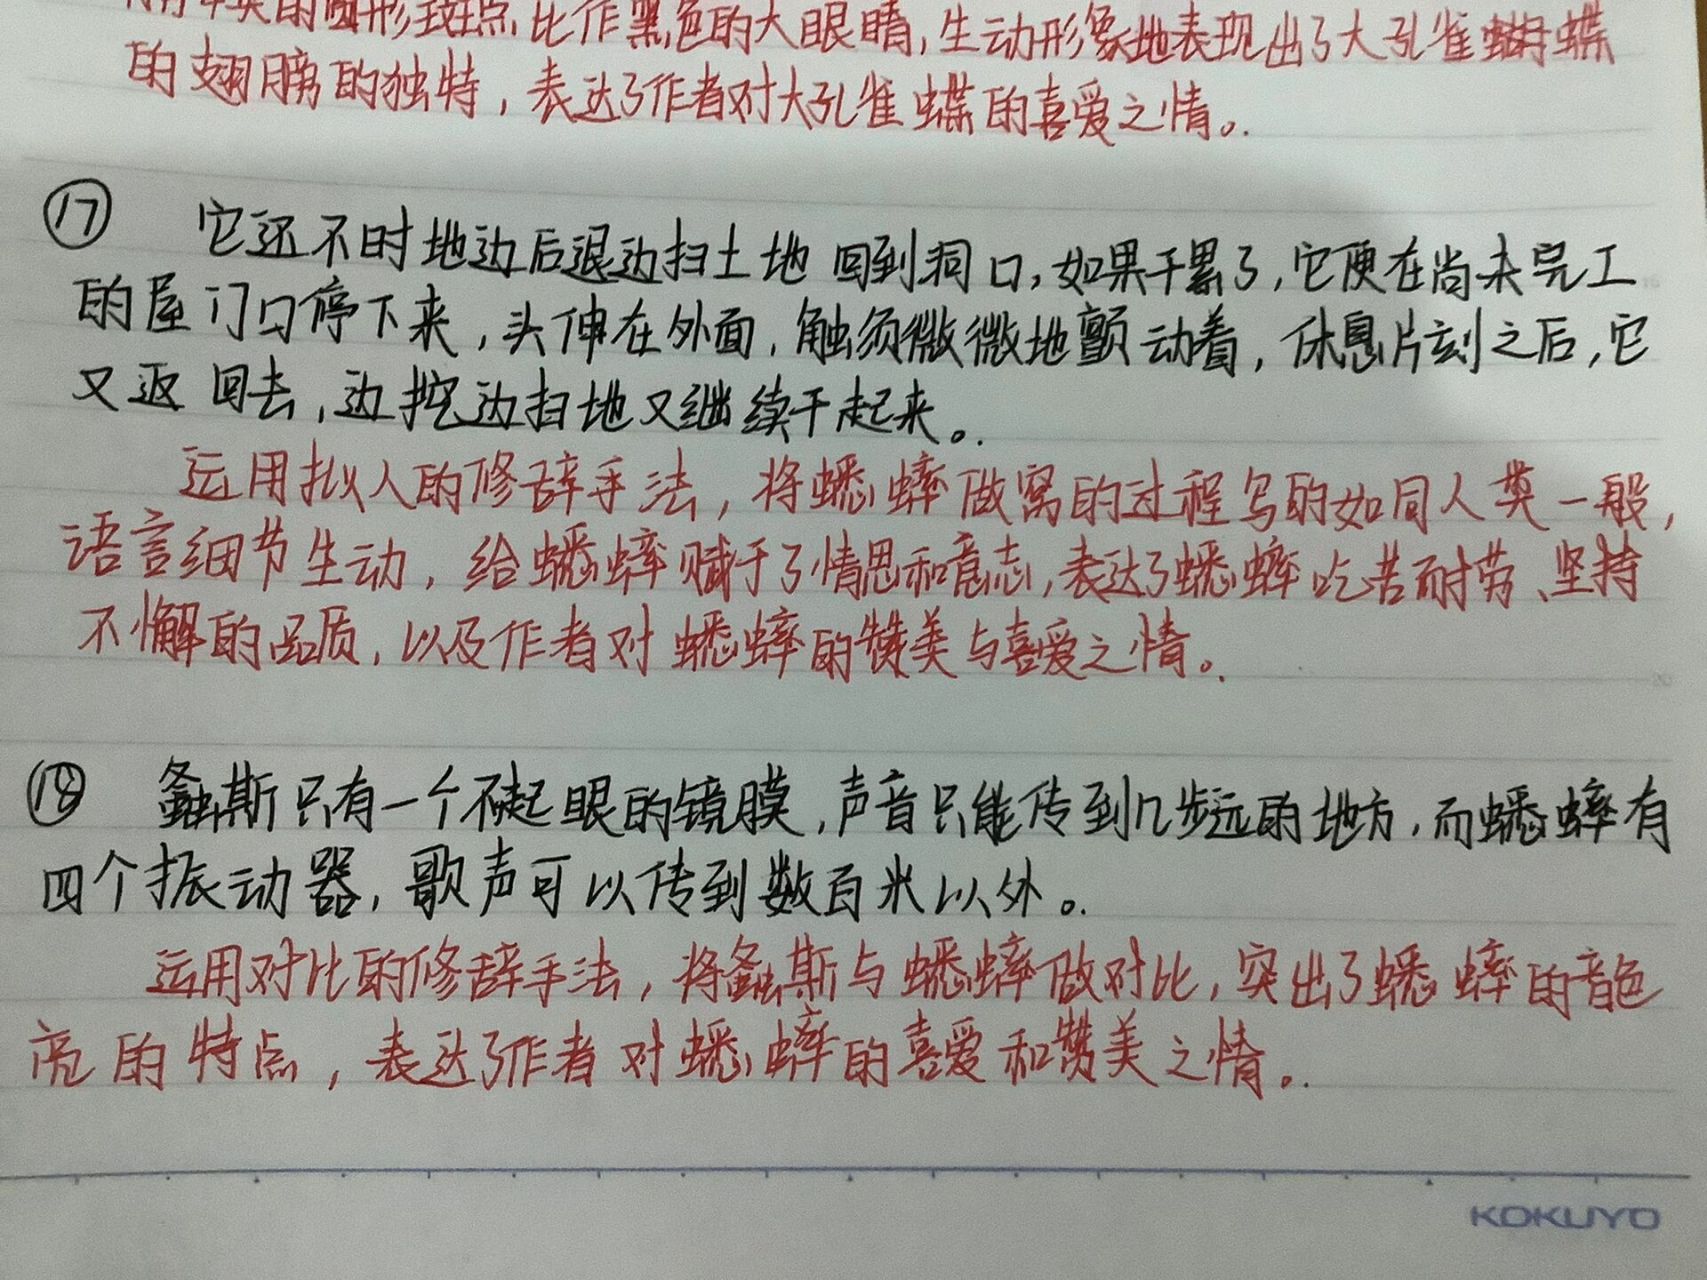 的圆形斑点比作黑色的大眼睛,生动形象地表现出了大孔雀蝴蝶
的翅膀的独特,表达了作者对大孔雀蝶的喜爱之情。
⑰ 它还不时地边后退边扫土地回到洞口,如果干累了,它便在尚未完工
的屋门口停下来,头伸在外面,触须微微地颤动着,休息片刻之后,它
又返回去,边挖边扫地又继续干起来。
运用拟人的修辞手法,将蟋蟀做窝的过程写的如同人类一般,
语言细节生动,给蟋蟀赋于了情思和意志,表达了蟋蟀吃苦耐劳、坚持
不懈的品质,以及作者对蟋蟀的赞美与喜爱之情。
⑱ 螽斯只有一个不起眼的镜膜,声音只能传到几步远的地方,而蟋蟀有
四个振动器,歌声可以传到数百米以外。
运用对比的修辞手法,将螽斯与蟋蟀做对比,突出了蟋蟀的音色
亮的特点,表达了作者对蟋蟀的喜爱和赞美之情。
KOKUYO